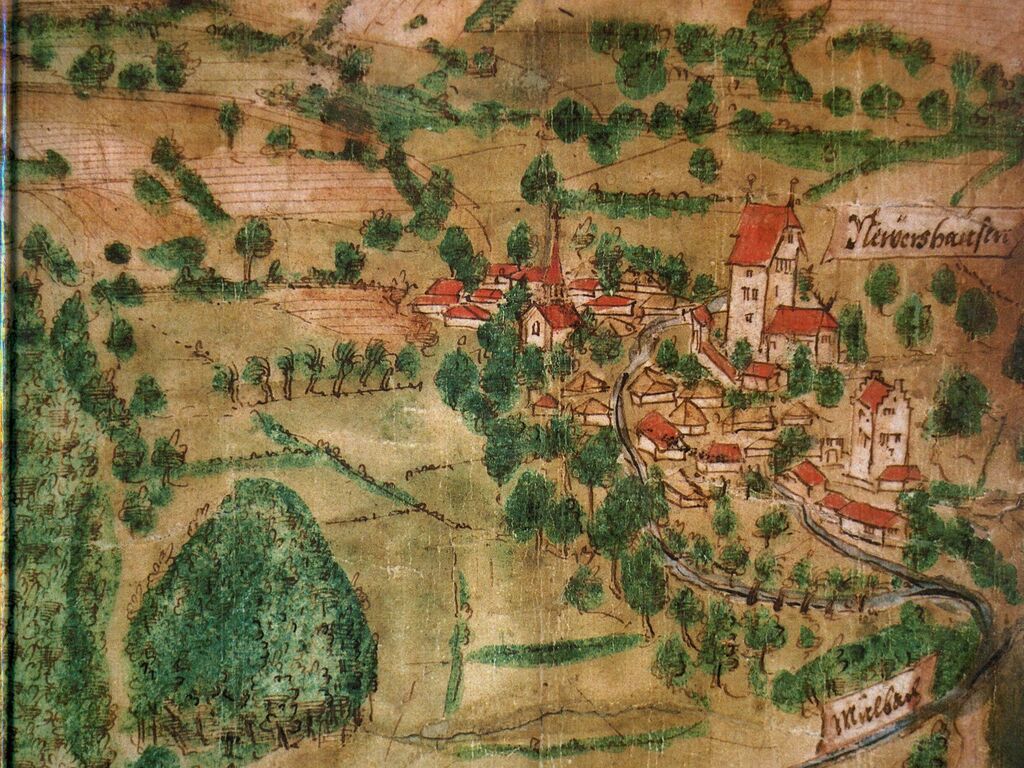 Newershausen
Mülbach